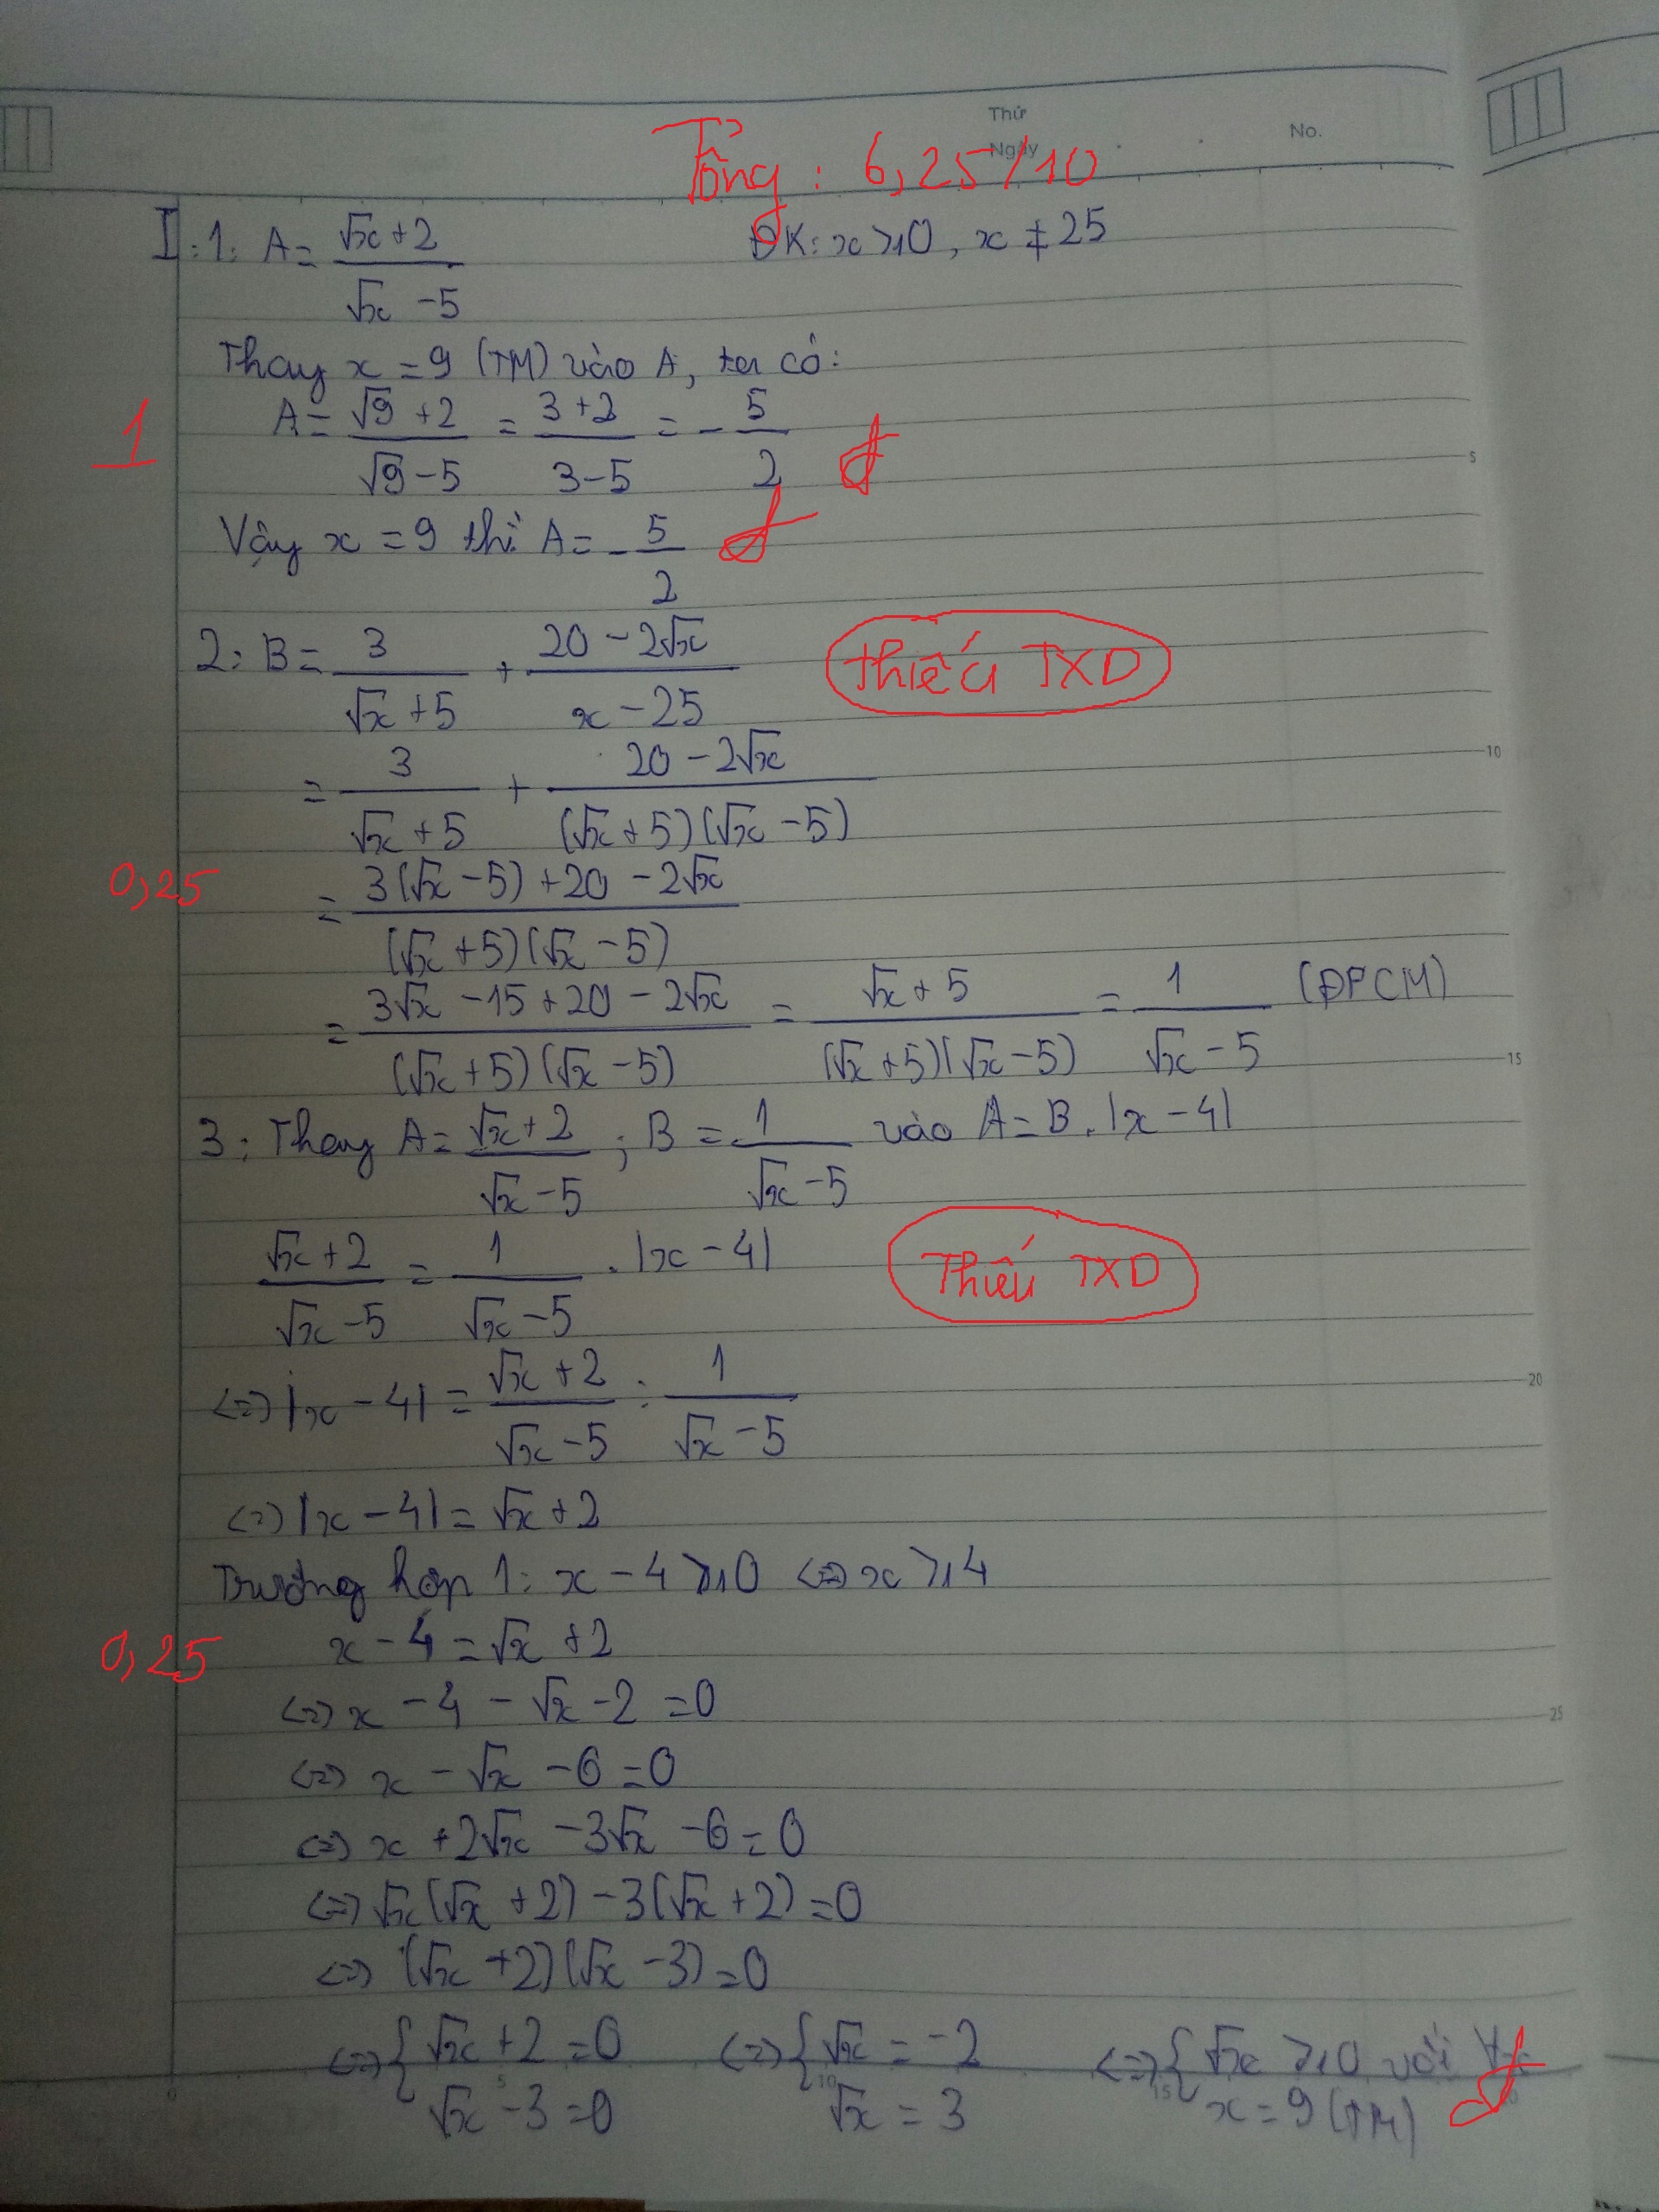 Thứ
Ngày
No.
Tổng: 6,25/10
I:1: A = (√x + 2)/(√x - 5) ĐK: x ≥ 0, x ≠ 25
Thay x = 9 (TM) vào A, ta có:
1
A = (√9 + 2)/(√9 - 5) = (3 + 2)/(3 - 5) = - 5/2 đ
5
Vậy x = 9 thì A = - 5/2 đ
2: B = 3/(√x + 5) + (20 - 2√x)/(x - 25) thiếu TXD
= 3/(√x + 5) + (20 - 2√x)/((√x + 5)(√x - 5))
10
0,25
= (3(√x - 5) + 20 - 2√x)/((√x + 5)(√x - 5))
= (3√x - 15 + 20 - 2√x)/((√x + 5)(√x - 5)) = (√x + 5)/((√x + 5)(√x - 5)) = 1/(√x - 5) (ĐPCM)
15
3: Thay A = (√x + 2)/(√x - 5); B = 1/(√x - 5) vào A = B.|x - 4|
(√x + 2)/(√x - 5) = 1/(√x - 5) . |x - 4| Thiếu TXD
<=> |x - 4| = (√x + 2)/(√x - 5) : 1/(√x - 5)
20
<=> |x - 4| = √x + 2
Trường hợp 1: x - 4 ≥ 0 <=> x ≥ 4
0,25
x - 4 = √x + 2
<=> x - 4 - √x - 2 = 0
25
<=> x - √x - 6 = 0
<=> x + 2√x - 3√x - 6 = 0
<=> √x(√x + 2) - 3(√x + 2) = 0
<=> (√x + 2)(√x - 3) = 0
<=> { √x + 2 = 0 <=> { √x = -2 <=> { √x ≥ 0 với ∀x
√x - 3 = 0 √x = 3 x = 9 (TM) đ
0 5 10 15 20